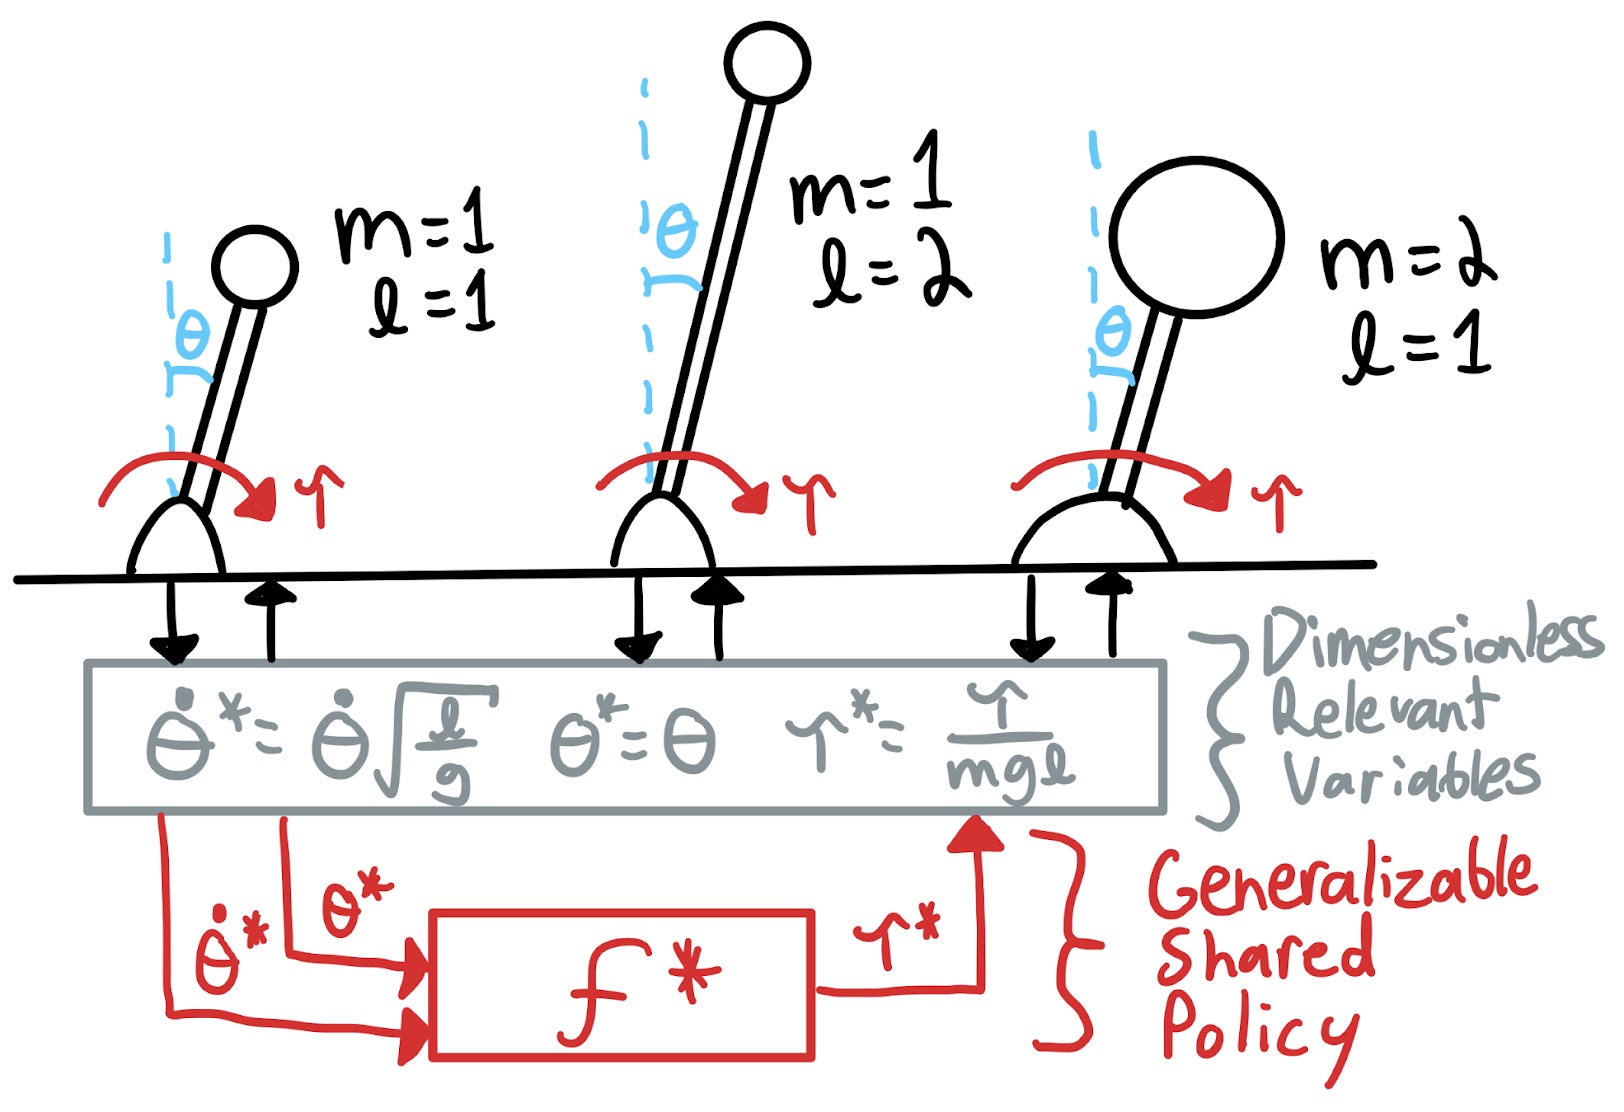 m=1
l=1
θ
τ
m=1
l=2
θ
τ
m=2
l=1
θ
τ
θ̇*= θ̇√(l/g) θ*=θ τ*= τ/mgl
Dimensionless
Relevant
Variables
θ̇*
θ*
f*
τ*
Generalizable
Shared
Policy